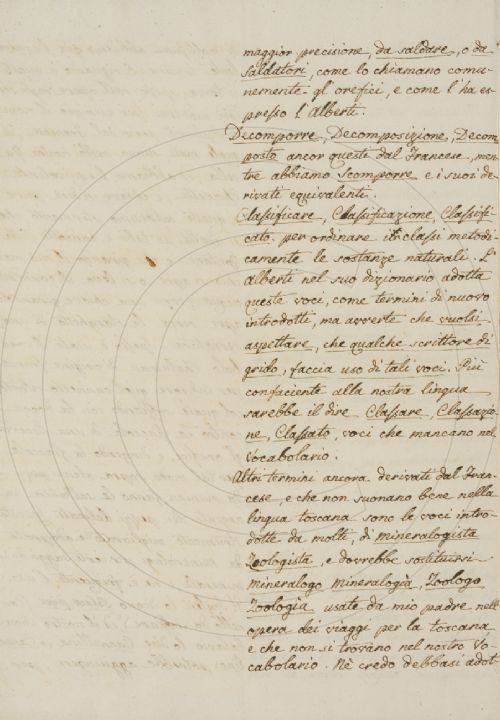 maggior precisione, da saldare, o da
Saldatori, come lo chiamano comu-
nemente gl'orefici, e come l'ha es-
presso l'Alberti.
Dicomporre, Decomposizione, Decom-
posto ancor queste dal Francese, men-
tre abbiamo Scomporre e i suoi de-
rivati equivalenti.
Classificare, Classificazione, Classifi-
cato. per ordinare in classi metodi-
camente le sostanze naturali. L'
Alberti nel suo dizionario adotta
queste voci, come termini di nuovo
introdotti, ma avverte che vuolsi
aspettare, che qualche scrittore di
grido, faccia uso di tali voci. Più
confaciente alla nostra lingua
sarebbe il dire Classare, Classazio-
ne, Classato, voci che mancano nel
Vocabolario.
Altri termini ancora derivati dal Fran-
cese, e che non suonano bene nella
lingua toscana sono le voci intro-
dotte da molti, di mineralogista
Zoologista, e dovrebbe sostituirsi
mineralogo mineralogia, Zoologo
Zoologia usate da mio padre nell'
opera dei viaggi per la toscana
e che non si trovano nel nostro Vo-
cabolario. Nè credo debbasi adot-